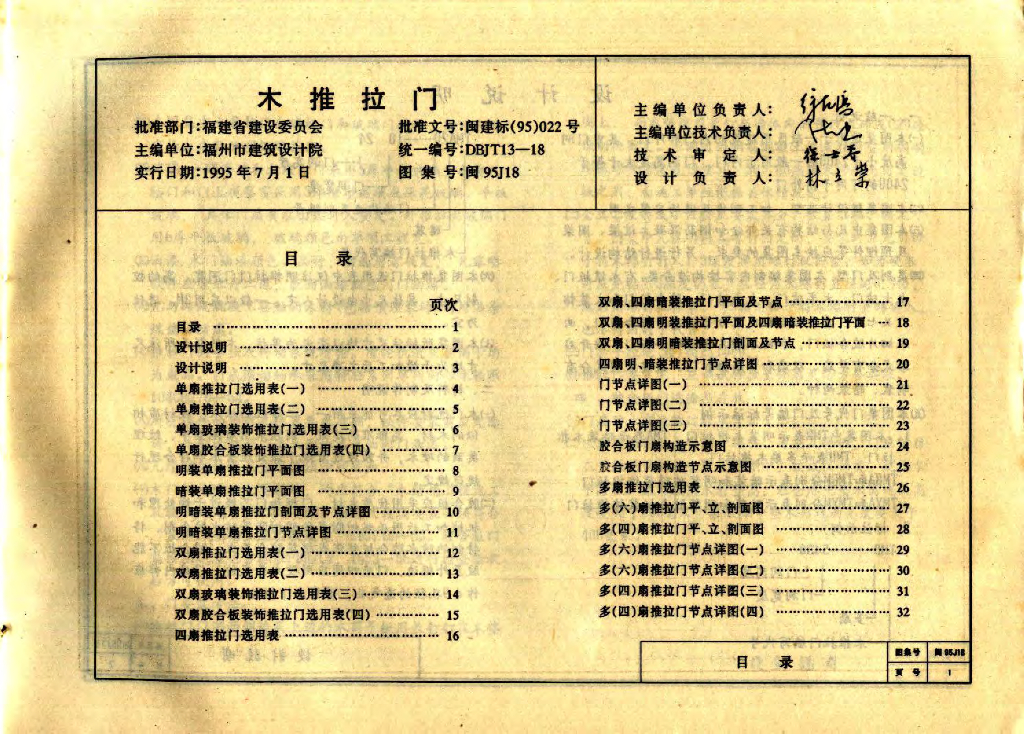 木推拉门
批准部门:福建省建设委员会
批准文号:闽建标(95)022号
主编单位:福州市建筑设计院
统一编号:DBJT13—18
实行日期:1995年7月1日
图集号:闽95J18
主编单位负责人:
主编单位技术负责人:
技术审定人:
设计负责人:
目录
页次
目录 1
设计说明 2
设计说明 3
单扇推拉门选用表(一) 4
单扇推拉门选用表(二) 5
单扇玻璃装饰推拉门选用表(三) 6
单扇胶合板装饰推拉门选用表(四) 7
明装单扇推拉门平面图 8
暗装单扇推拉门平面图 9
明暗装单扇推拉门剖面及节点详图 10
明暗装单扇推拉门节点详图 11
双扇推拉门选用表(一) 12
双扇推拉门选用表(二) 13
双扇玻璃装饰推拉门选用表(三) 14
双扇胶合板装饰推拉门选用表(四) 15
四扇推拉门选用表 16
双扇、四扇暗装推拉门平面及节点 17
双扇、四扇明装推拉门平面及四扇暗装推拉门平面 18
双扇、四扇明暗装推拉门剖面及节点 19
四扇明、暗装推拉门节点详图 20
门节点详图(一) 21
门节点详图(二) 22
门节点详图(三) 23
胶合板门扇构造示意图 24
胶合板门扇构造节点示意图 25
多扇推拉门选用表 26
多(六)扇推拉门平、立、剖面图 27
多(四)扇推拉门平、立、剖面图 28
多(六)扇推拉门节点详图(一) 29
多(六)扇推拉门节点详图(二) 30
多(四)扇推拉门节点详图(三) 31
多(四)扇推拉门节点详图(四) 32
目录
图集号 闽95J18
页号 1